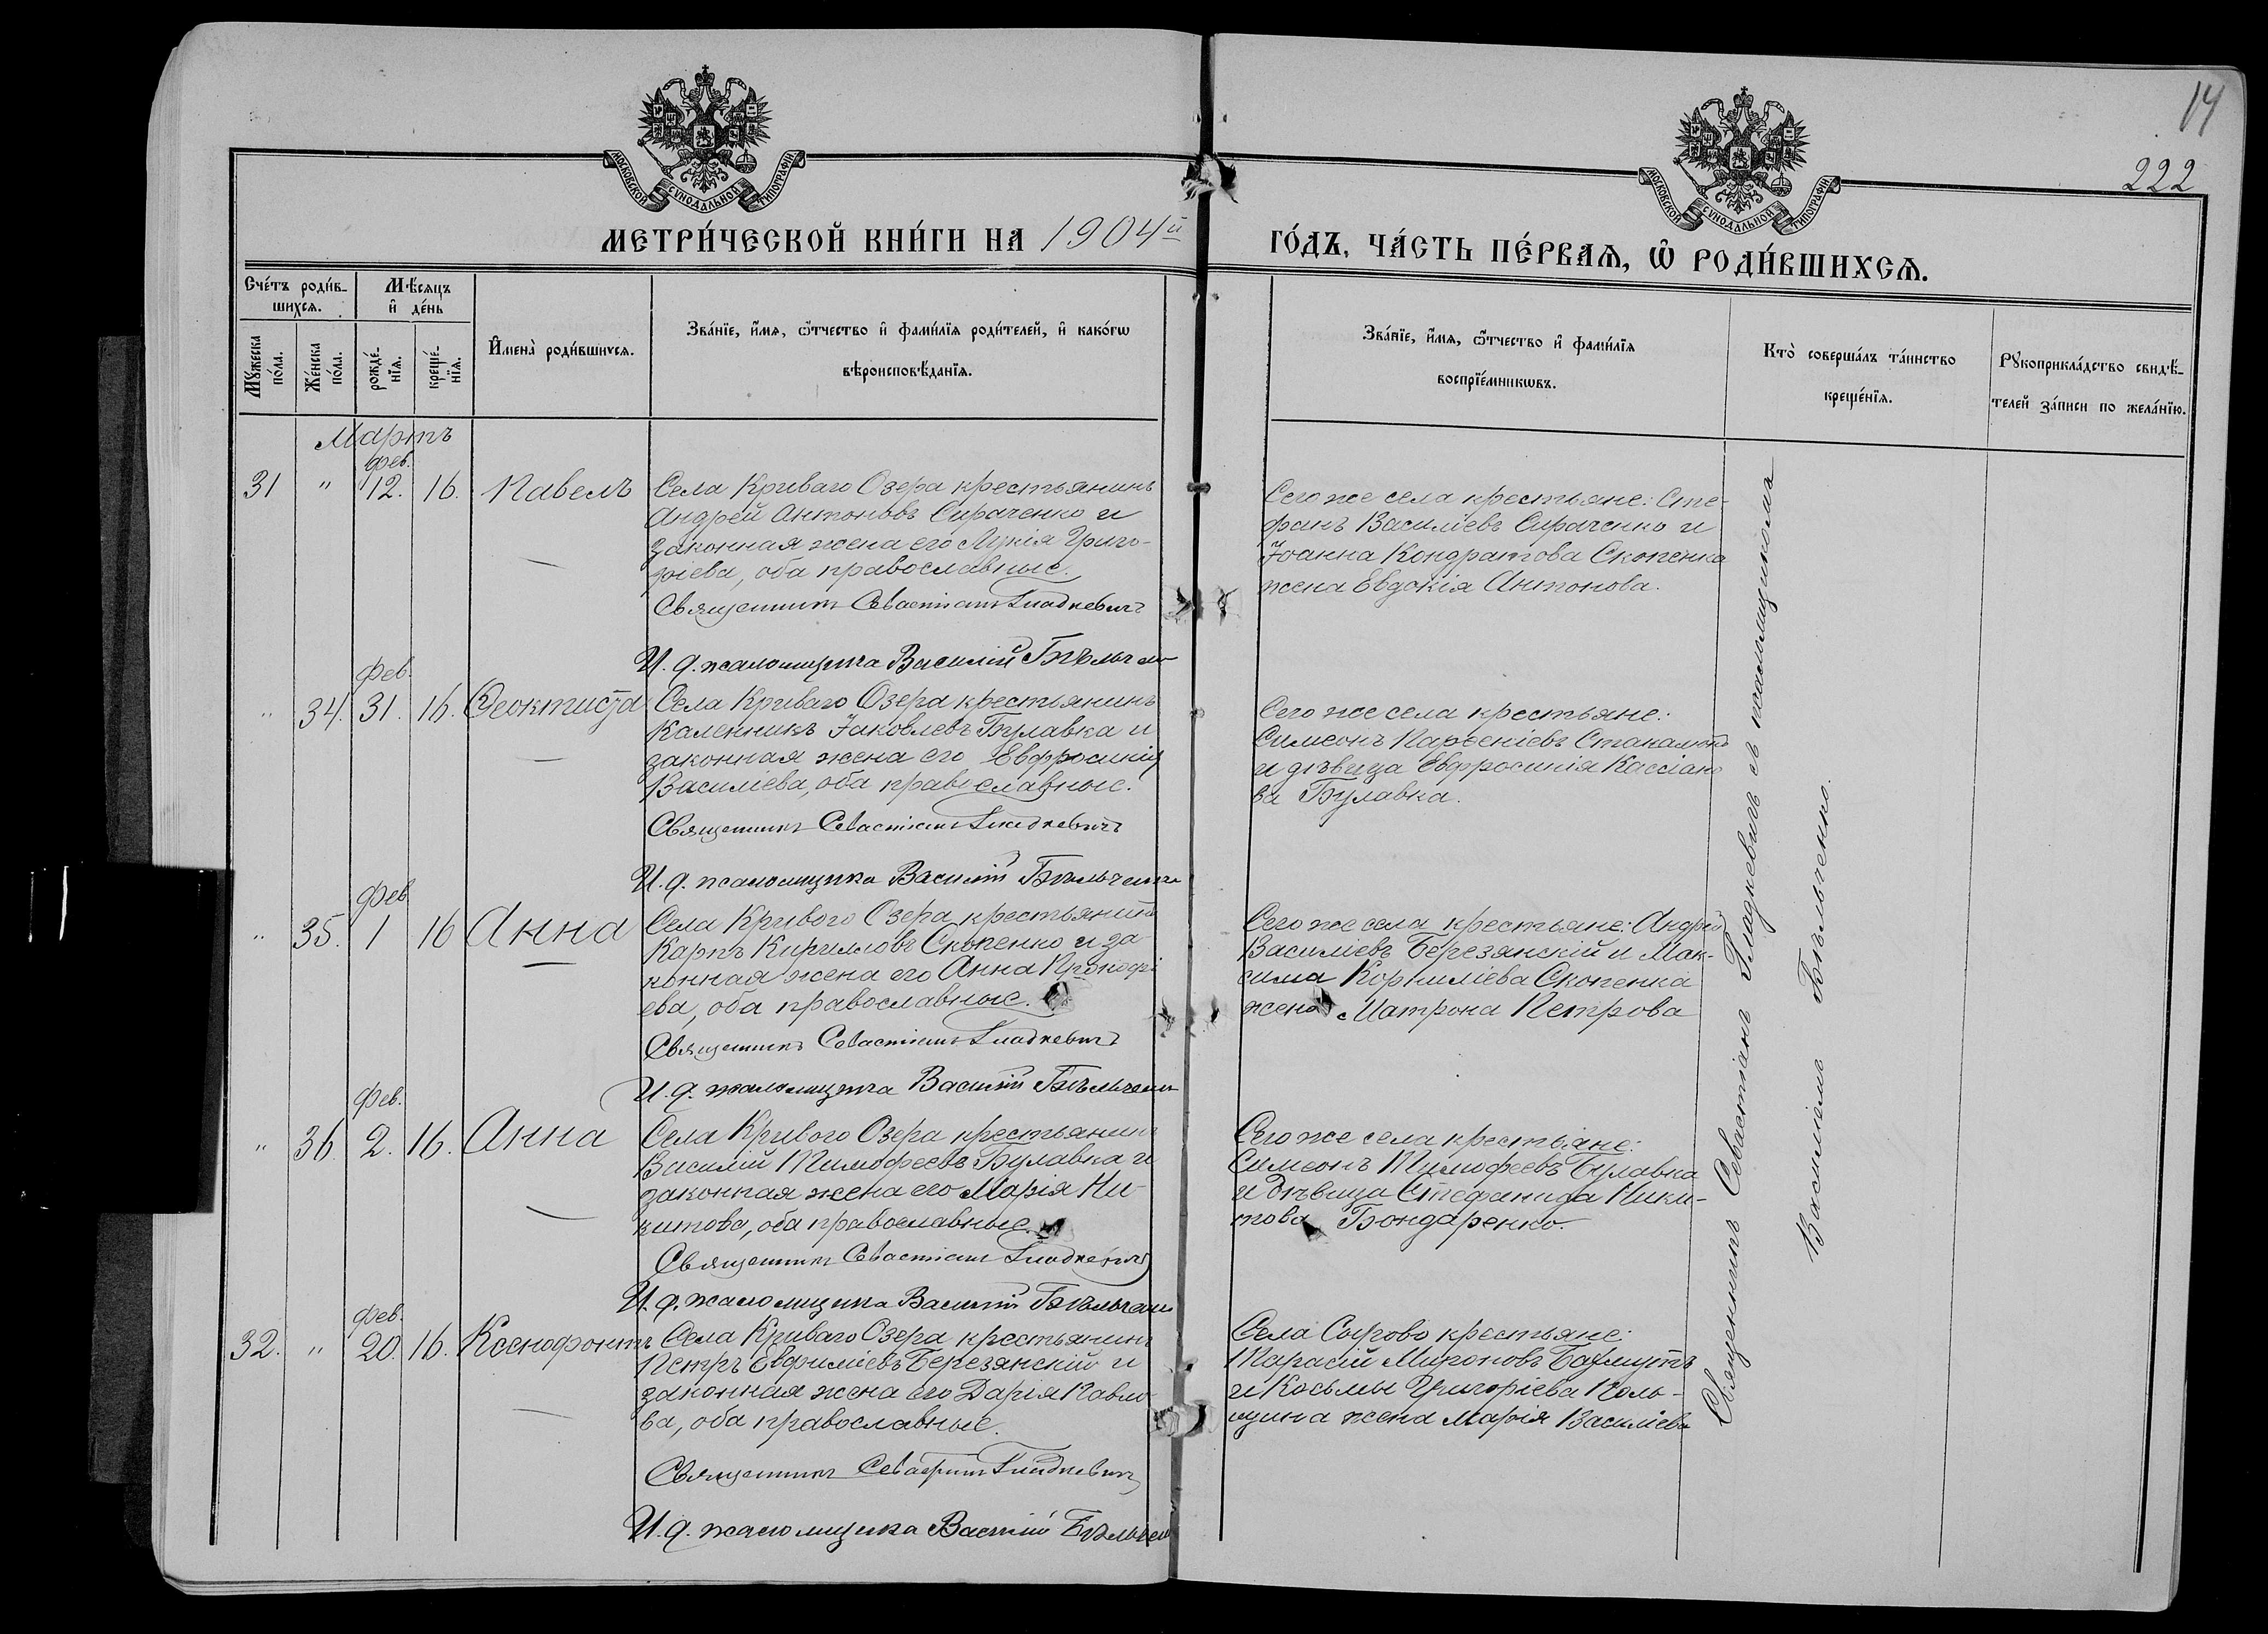 14
222
МОСКОВСКОЙ СѴНОДАЛЬНОЙ ТИПОГРАФІИ
МОСКОВСКОЙ СѴНОДАЛЬНОЙ ТИПОГРАФІИ
МЕТРИ́ЧЕСКОЙ КНИ́ГИ НА 1904й
ГО́ДЪ, ЧА́СТЬ ПЕ́РВАѦ, Ѽ РОДИ́ВШИХСѦ.
Сче́тъ роди́в-
шихсѧ.
Мѣ́сѧцъ
и҆ де́нь
Мꙋ́жеска
по́ла.
Же́нска
по́ла.
рожде́-
нїѧ.
креще́-
нїѧ.
И҆мена̀ роди́вшихсѧ.
Зва́нїе, и҆́мѧ, ѻ҆́тчество и҆ фами́лїѧ роди́телей, и҆ како́гѡ
вѣроисповѣ́данїѧ.
Зва́нїе, и҆́мѧ, ѻ҆́тчество и҆ фами́лїѧ
воспрїе́мникѡвъ.
Кто̀ соверша́лъ та́инство
креще́нїѧ.
Рꙋкоприкла́дство свидѣ́-
телей за́писи по жела́нїю.
Мартъ
фев.
31 " 12. 16. Павелъ
Села Криваго Озера крестьянинъ
Андрей Антоновъ Сираченко и
законная жена его Лукія Григо-
ріева, оба православные.
Священникъ Севастіанъ Гладкевичъ
И. д. псаломщика Василій Бѣльченко
Сего же села крестьяне: Сте-
фанъ Василіевъ Сираченко и
Іоанна Кондратова Скопенка
жена Евдокія Антонова.
Фев.
" 34. 31. 16. Феоктиста
Села Криваго Озера крестьянинъ
Каленникъ Іаковлевъ Булавка и
законная жена его Евфросинія
Василіева, оба православные.
Священникъ Севастіанъ Гладкевичъ
И. д. псаломщика Василій Бѣльченко
Сего же села крестьяне:
Симеонъ Парѳеніевъ
и дѣвица Евфросинія Кассіано
ва Булавка.
Фев
" 35. 1 16 Анна
Села Кривого Озера крестьянинъ
Карпъ Кирилловъ Скопенко и за
конная жена его Анна Прокофі
ева, оба православные.
Священникъ Севастіанъ Гладкевичъ
И. д. псаломщика Василій Бѣльченко
Сего же села крестьяне: Андрей
Василіевъ Березянскій и Мак-
сима Корниліева Скопенка
жена Матрона Петрова
Фев.
" 36 2. 16. Анна
Села Кривого Озера крестьянинъ
Василій Тимофеевъ Булавка и
законная жена его Марія Ни-
китова, оба православные.
Священникъ Севастіанъ Гладкевичъ
И. д. псаломщика Василій Бѣльченко
Сего же села крестьяне:
Симеонъ Тимофеевъ Булавка
и дѣвица Стефанида Ники-
това Бондаренко.
фев.
32. " 20. 16. Ксенофонтъ
Села Криваго Озера крестьянинъ
Петръ Евфиміевъ Березянскій и
законная жена его Дарія Павло
ва, оба православные.
Священникъ Севастіанъ Гладкевичъ
И. д. псаломщика Василій Бѣльченко
Села Сырово крестьяне:
Тарасій Мироновъ Бахмутъ
и Косьмы Григоріева Коль-
щина жена Марія Василіева
Священникъ Севастіанъ Гладкевичъ съ псаломщикомъ
Василіемъ Бѣльченко.